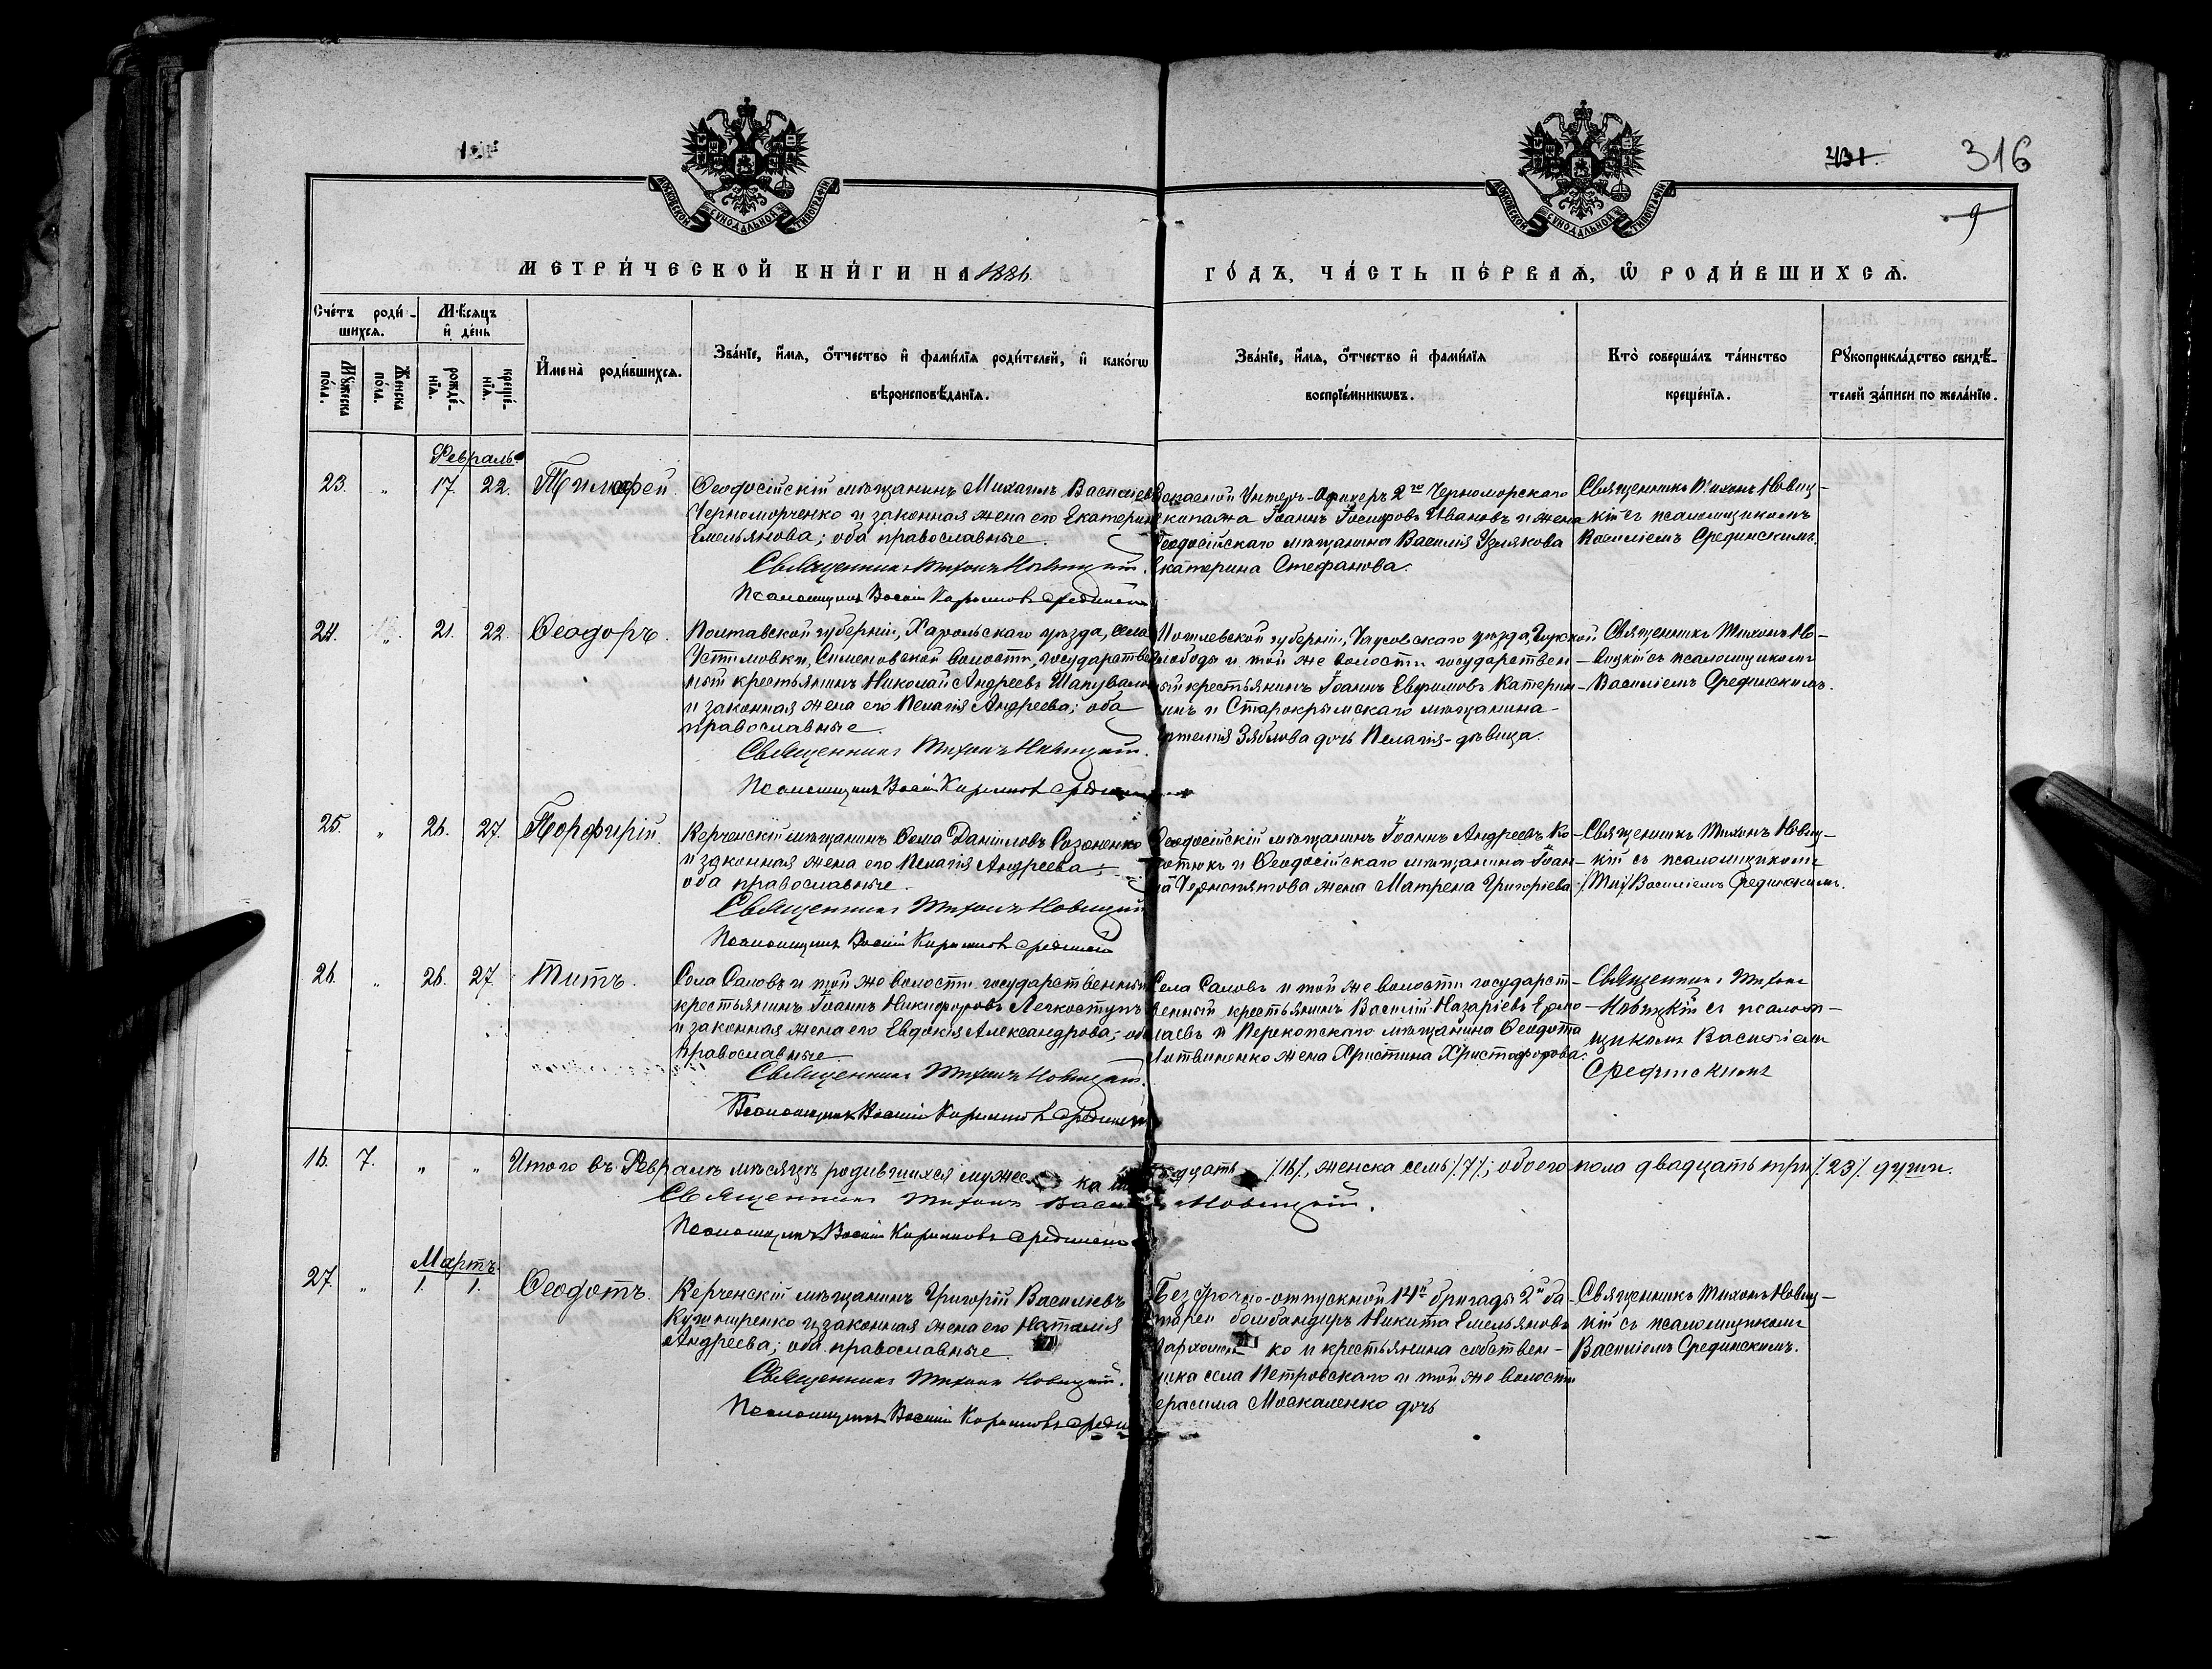 316
431.
9
МОСКОВСКОЙ СѴНОДАЛЬНОЙ ТИПОГРАФІИ
МОСКОВСКОЙ СѴНОДАЛЬНОЙ ТИПОГРАФІИ
МЕТРИ́ЧЕСКОЙ КНИ́ГИ НА 1886
ГО́ДЪ, ЧА́СТЬ ПЕ́РВАѦ, Ѡ РОДИ́ВШИХСѦ.
Сче́тъ роди́-
шихсѧ.
Мꙋжеска по́ла.
Же́нска по́ла.
Мѣ́сѧцъ
и҆ де́нь
рожде́нїѧ.
креще́нїѧ.
И҆мена̀ роди́вшихсѧ.
Зва́нїе, и҆́мѧ, ѻ҆́тчество и҆ фами́лїѧ роди́телей, и҆ како́гѡ
вѣроисповѣ́данїѧ.
Зва́нїе, и҆́мѧ, ѻ҆́тчество и҆ фами́лїѧ
воспрїе́мникѡвъ.
Кто̀ соверша́лъ та́инство
креще́нїѧ.
Рꙋкоприкла́дство свидѣ́-
телей за́писи по жела́нїю.
Февраль
23. „ 17. 22. Тимофей.
Ѳеодосійскій мѣщанинъ Михаилъ Василіевъ
Черноморченко и законная жена его Екатерина
Емельянова; оба православные.
Священникъ Тихонъ Новицкій.
Псаломщикъ Василій Срединскій
Запасной Унтеръ-Офицеръ 2го Черноморскаго
Экипажа Іоаннъ Іосифовъ Ивановъ и жена
Ѳеодосійскаго мѣщанина Василія
Екатерина Стефанова.
Священникъ Тихонъ Новиц-
кій съ псаломщикомъ
Василіемъ Срединскимъ.
24. „ 21. 22. Ѳеодоръ.
Полтавской губерніи, Хорольскаго уѣзда, села
Устимовки, волости, государствен
ный крестьянинъ Николай Андреевъ Шаповало
и законная жена его Пелагія Андреева; оба
православные.
Священникъ Тихонъ Новицкій.
Псаломщикъ Василій Срединскій
Могилевской губерніи, Чаусовскаго уѣзда,
слободы и той же волости государствен-
ный крестьянинъ Іоаннъ Евфимовъ Катерин-
инъ и Старокрымскаго мѣщанина
Зяблова дочь Пелагія-дѣвица.
Священникъ Тихонъ Но-
вицкій съ псаломщикомъ
Василіемъ Срединскимъ.
25. „ 26. 27. Порфирій.
Керченскій мѣщанинъ Ѳома Даніиловъ Созоненко
и законная жена его Пелагія Андреева;
оба православные.
Священникъ Тихонъ Новицкій
Псаломщикъ Василій Срединскій
Ѳеодосійскій мѣщанинъ Іоаннъ Андреевъ Ко-
ротюкъ и Ѳеодосійскаго мѣщанина Іоан-
на жена Матрена Григоріева.
Священникъ Тихонъ Новиц-
кій съ псаломщикомъ
Василіемъ Срединскимъ.
26. „ 26. 27. Титъ.
Села Саловъ и той же волости государственный
крестьянинъ Іоаннъ Никифоровъ Легкоступъ
и законная жена его Евдокія Александрова; оба
православные
Священникъ Тихонъ Новицкій.
Псаломщикъ Василій Срединскій
Села Саловъ и той же волости государст-
венный крестьянинъ Василій Назаріевъ Ермо
лаевъ и Перекопскаго мѣщанина Ѳеодота
Литвиненко жена Христина Христофорова.
Священникъ Тихонъ
Новицкій съ псалом-
щикомъ Василіемъ
Срединскимъ
16. 7. „ „ Итого въ Февралѣ мѣсяцѣ родившихся мужеска шестнадцать /16/, женска семь /7/; обоего пола двадцать три /23/ души.
Священникъ Тихонъ Новицкій.
Псаломщикъ Василій Срединскій
Мартъ.
27. „ 1. 1. Ѳеодотъ.
Керченскій мѣщанинъ Григорій Василіевъ
Кушниренко и законная жена его Наталія
Андреева; оба православные.
Священникъ Тихонъ Новицкій.
Псаломщикъ Василій
Безсрочно-отпускной 14й бригады 2й ба-
тареи бомбандиръ Никита Емельяновъ
Пархоменко и крестьянина собствен-
ника села Петровскаго и той же волости
Герасима Москаленко дочь
Священникъ Тихонъ Новиц-
кій съ псаломщикомъ
Василіемъ Срединскимъ.